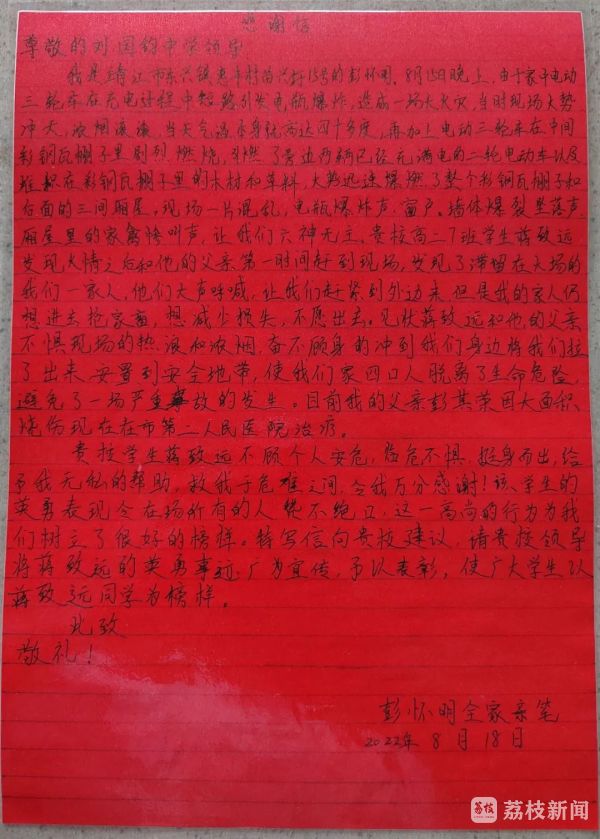 感谢信
尊敬的刘国钧中学领导
我是靖江市东兴镇惠丰村苗兴圩15号的彭怀明。8月15日晚上,由于家中电动
三轮车在充电过程中短路引发电瓶爆炸,造成一场大火灾,当时现场火势
冲天,浓烟滚滚,当天气温本身就高达四十多度,再加上电动三轮车在中间
彩钢瓦棚子里剧烈燃烧,引燃了旁边两辆已经充满电的二轮电动车以及
堆积在彩钢瓦棚子里的木材和草料,火势迅速爆燃了整个彩钢瓦棚子和
右面的三间厢屋。现场一片混乱,电瓶爆炸声,窗户、墙体爆裂坠落声,
厢屋里的家禽惨叫声,让我们六神无主,贵校高二7班学生蒋致远
发现火情之后和他的父亲第一时间赶到现场,发现了滞留在火场的
我们一家人,他们大声呼喊,让我们赶紧到外边来,但是我的家人仍
想进去抢家畜,想减少损失,不愿出去。见状蒋致远和他的父亲
不惧现场的热浪和浓烟,奋不顾身的冲到我们身边将我们拉
了出来,安置到安全地带,使我们家四口人脱离了生命危险,
避免了一场严重事故的发生。目前我的父亲彭其荣因大面积
烧伤现在在市第二人民医院治疗。
贵校学生蒋致远不顾个人安危,临危不惧,挺身而出,给
予我无私的帮助,救我于危难之间,令我万分感谢!该学生的
英勇表现令在场所有的人赞不绝口,这一高尚的行为为我
们树立了很好的榜样。特写信向贵校建议,请贵校领导
将蒋致远的英勇事迹广为宣传,予以表彰,使广大学生以
蒋致远同学为榜样。
此致
敬礼!
彭怀明全家亲笔
2022年8月18日
荔枝 荔枝新闻